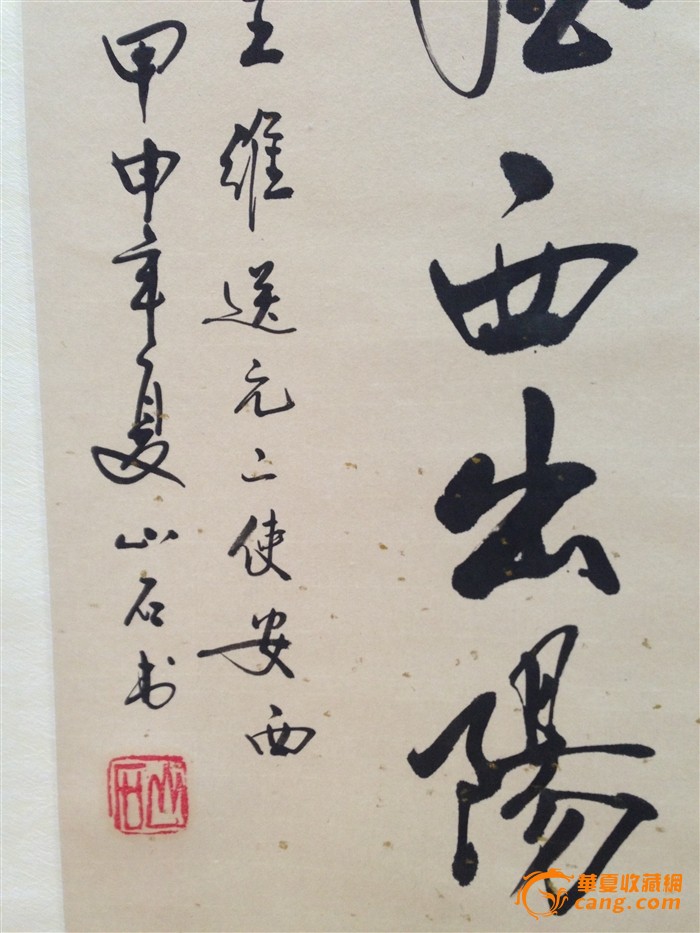 酒西出陽
王維送元二使安西
甲申年夏山石书
山石
華夏收藏網
cang.com